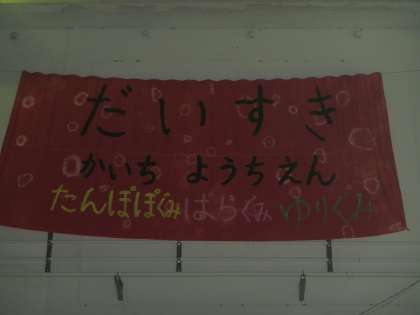 だいすき
かいち ようちえん
たんぽぽぐみ ばらぐみ ゆりぐみ